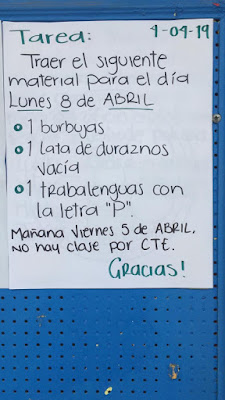 Tarea: 4-04-19
Traer el siguiente
material para el día
Lunes 8 de ABRIL
1 burbujas
1 lata de duraznos
vacía
1 trabalenguas con
la letra "P".
Mañana Viernes 5 de ABRIL,
NO hay clase por CTE.
Gracias!